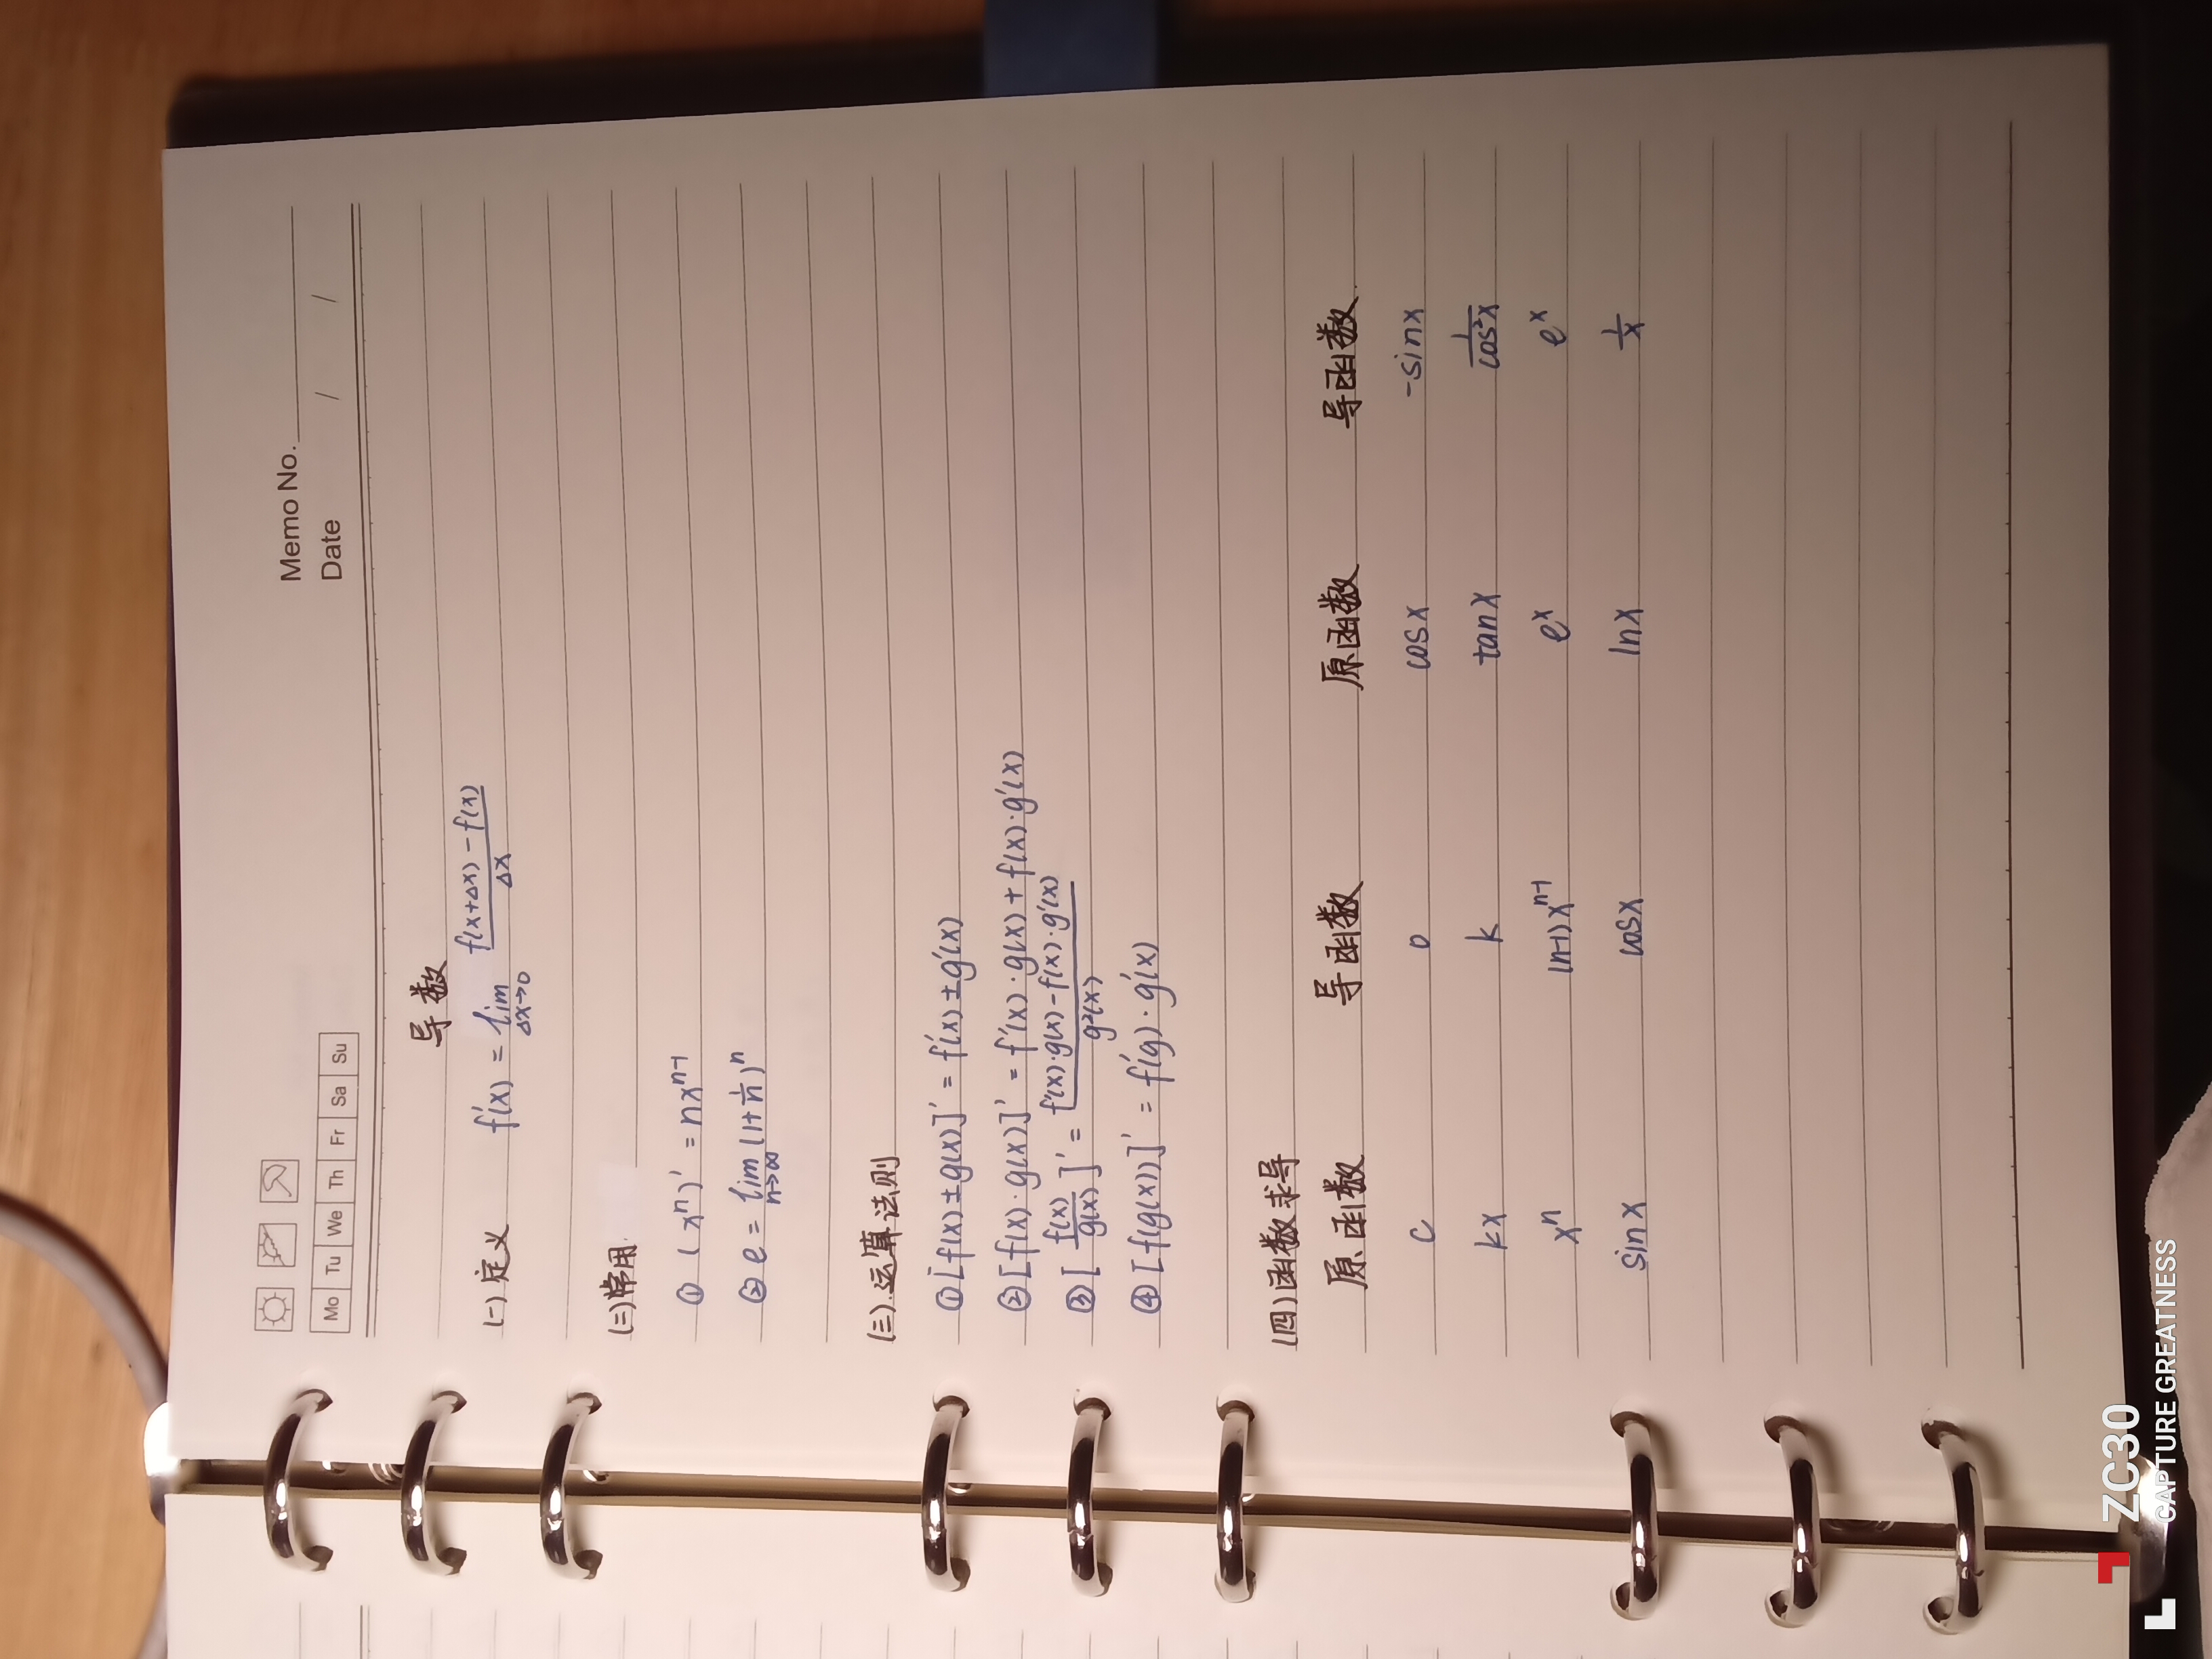 Memo No.
Mo Tu We Th Fr Sa Su Date / /
导数
(一)定义 f'(x) = lim Δx→0 f(x+Δx) - f(x) / Δx
(二)常用
① (xⁿ)' = nxⁿ⁻¹
② e = lim n→∞ (1+1/n)ⁿ
(三).运算法则
① [f(x)±g(x)]' = f'(x)±g'(x)
② [f(x)·g(x)]' = f'(x)·g(x)+f(x)·g'(x)
③ [f(x)/g(x)]' = f'(x)·g(x)-f(x)·g'(x) / g²(x)
④ [f(g(x))]' = f'(g)·g'(x)
(四)函数求导
原函数 导函数 原函数 导函数
C 0 cosx -sinx
kx k tanx 1/cos²x
xⁿ (n-1)xⁿ⁻¹ eˣ eˣ
sinx cosx lnx 1/x
ZC30
CAPTURE GREATNESS